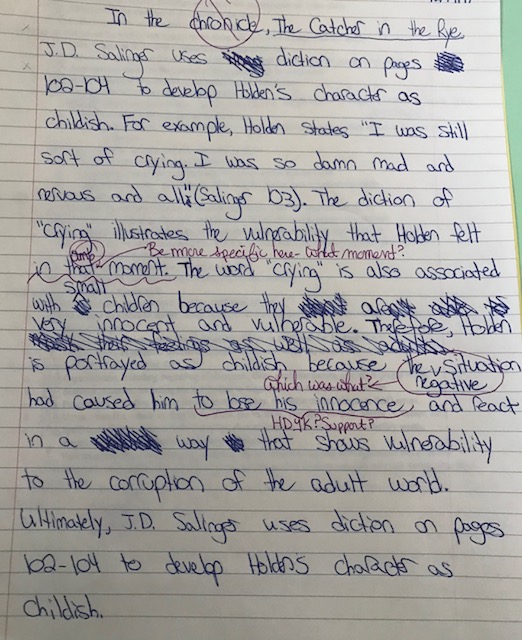 In the chronicle, The Catcher in the Rye,
J.D. Salinger uses diction on pages
102-104 to develop Holden's character as
childish. For example, Holden states "I was still
sort of crying. I was so damn mad and
nervous and all" (Salinger 103). The diction of
"crying" illustrates the vulnerability that Holden felt
Be more specific here - what moment?
in that moment. The word "crying" is also associated
small
with children because they are
very innocent and vulnerable. Therefore, Holden
is portrayed as childish because the situation
which was what? negative
had caused him to lose his innocence and react
HDYK? Support?
in a way that shows vulnerability
to the corruption of the adult world.
Ultimately, J.D. Salinger uses diction on pages
102-104 to develop Holdens character as
childish.